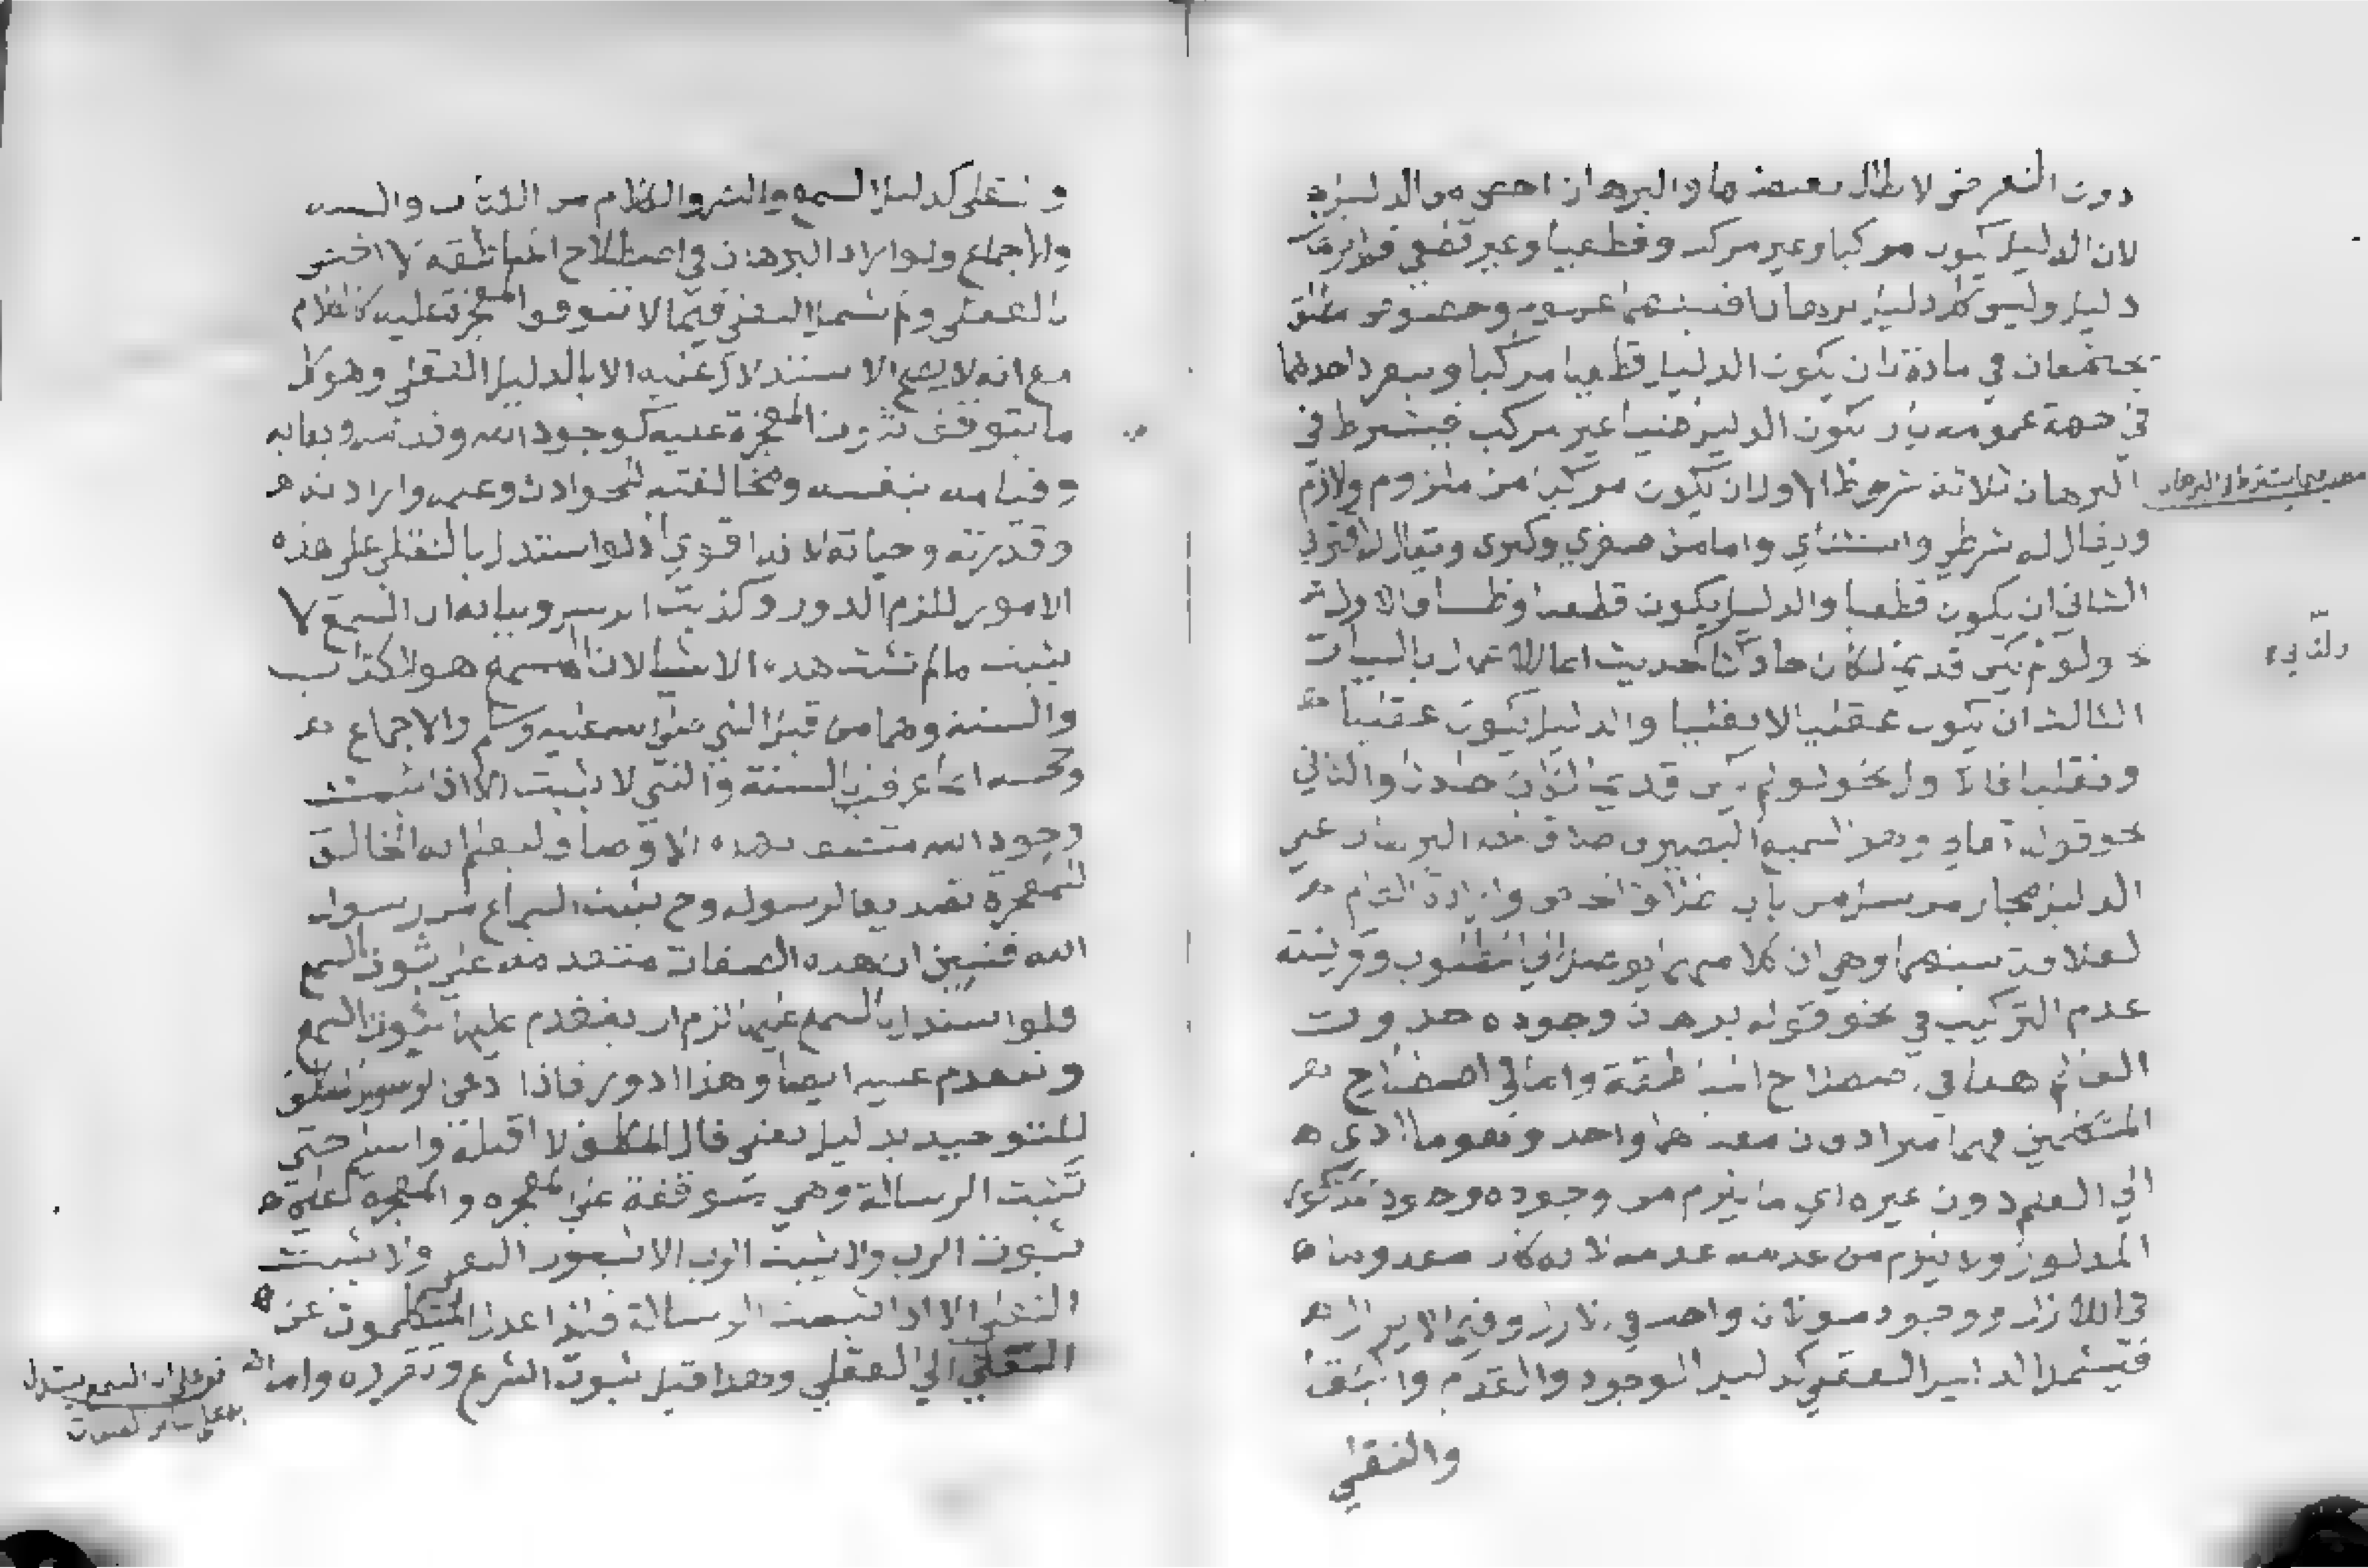 دون التعرض لابطال بعضها والبرهان اخص من الدليل
لان الدليل يكون مركبا وغير مركب وقطعيا وغير قطعي فكل برهان
دليل وليس كل دليل برهانا فبينهما عموم وخصوص مطلق
يجتمعان في مادة بان يكون الدليل قطعيا مركبا وينفرد احدهما
في جهة عمومه بان يكون الدليل ظنيا غير مركب فيشترط في
البرهان ثلاثة شروط الاول ان يكون مركبا من ملزوم ولازم
ويقال له شرطي واستثنائي واما من صغري وكبري ويقال له اقتراني
الثاني ان يكون قطعيا والدليل يكون قطعيا وظنيا فالاول
نحو لو لم يكن قديما لكان حادثا كحديث انما الاعمال بالنيات
الثالث ان يكون عقليا لا نقليا والدليل يكون عقليا
ونقليا فالاول نحو لو لم يكن قديما لكان حادثا والثاني
نحو قوله تعالى وهو السميع البصير واطلاق البرهان على
الدليل مجاز مرسل من باب اطلاق الخاص وارادة العام
لعلاقة بينهما وهي ان كلا منهما يوصل الي المطلوب وقرينته
عدم التركيب في نحو قوله برهان وجوده حدوث
العالم هذا في اصطلاح المناطقة واما في اصطلاح
المتكلمين فهما مترادفان معناهما واحد وهو ما ادي
الي العلم دون غيره اي ما يلزم من وجوده وجود
المدلول ولا يلزم من عدمه عدمه لانه كان معدوما
في الازل ووجود مولانا واحد في الازل وفيما لا يزال
فيشمل الدليل العقلي كدليل الوجود والقدم والبقا
والنقلي
والنقلي كدليل السمع والبصر والكلام من الكتاب والسنة
والاجماع ولو اراد البرهان في اصطلاح المناطقة لاختص
بالعقلي ولم يشمل النقلي فيما لا تتوقف المعجزة عليه كالكلام
مع انه لا يصح الاستدلال عليه الا بالدليل النقلي وهو كل
ما يتوقف ثبوت المعجزة عليه كوجود الله وقدمه وبقايه
وقيامه بنفسه ومخالفته للحوادث وعلمه وارادته
وقدرته وحياته لانه اقوي اذ لو استدل بالنقلي علي هذه
الامور للزم الدور وكذبت الرسل وبيانه ان السمع لا
يثبت ما لم تثبت هذه الاشيا لان السمع هو الكتاب
والسنة وهما من قبل النبي صلى الله عليه وسلم والاجماع
وحجيته انما عرفت بالسنة والنبي لا يثبت الا ان ثبت
وجود الله متصف بهذه الاوصاف وليعلم انه الخالق
للمعجزة تصديقا لرسوله وح يثبت السماع من رسول
الله فتبين ان هذه الصفات متقدمة علي ثبوت السمع
فلو استدل بالسمع عليها لزم ان يتقدم عليها ثبوت السمع
وتتقدم عليه ايضا وهذا دور فاذا دعي الرسول المكلف
للتوحيد بدليل نقلي قال المكلف لا اقبله واسلم حتي
تثبت الرسالة وهي متوقفة علي المعجزه والمعجزه
ثبوت الرب ولا يثبت الرب الا بثبوت النقل ولا يثبت
النقلي الا اذا ثبتت الرسالة فلذا عدل المتكلمون عن
النقلي الي العقلي وهذا قبل ثبوت الشرع وتقريره واما
قوله علي ان السمع يستدل